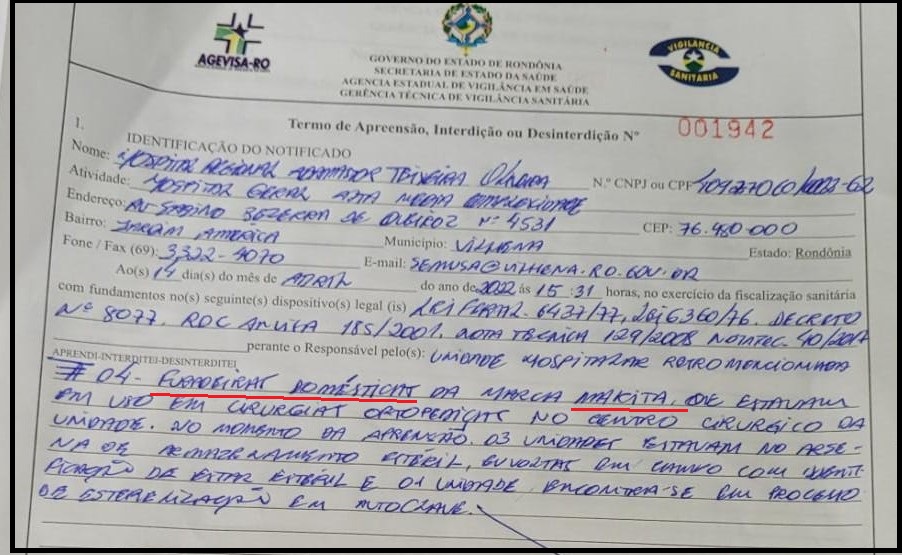 AGEVISA-RO
GOVERNO DO ESTADO DE RONDÔNIA
SECRETARIA DE ESTADO DA SAÚDE
AGENCIA ESTADUAL DE VIGILÂNCIA EM SAÚDE
GERÊNCIA TÉCNICA DE VIGILÂNCIA SANITÁRIA
VIGILANCIA
SANITARIA
Termo de Apreensão, Interdição ou Desinterdição Nº 001942
1. IDENTIFICAÇÃO DO NOTIFICADO
Nome: HOSPITAL REGIONAL ADAMASTOR TEIXEIRA OLIVEIRA N.º CNPJ ou CPF
Atividade: HOSPITAL GERAL ALTA MEDIA COMPLEXIDADE
Endereço: AV SABINO BEZERRA DE QUEIROZ Nº 4531 CEP: 76.980-000
Bairro: JARDIM AMERICA Municipio: VILHENA Estado: Rondônia
Fone / Fax (69): 3322-4070 E-mail: SEMUSA@VILHENA.RO.GOV.BR
Ao(s) 14 dia(s) do mês de ABRIL do ano de 2022 às 15:31 horas, no exercício da fiscalização sanitária
com fundamentos no(s) seguinte(s) dispositivo(s) legal (is) LEI FERAL. 6437/77, LEI 6360/76. DECRETO
Nº 8077. RDC ANVISA 185/2001. NOTA TECNICA 129/2008 NOTA TEC. 40/2017
perante o Responsável pelo(s): UNIDADE HOSPITALAR RETROMENCIONADA
APRENDI-INTERDITEI-DESINTERDITEI
# 04 - FURADEIRAS DOMÉSTICAS DA MARCA MAKITA, QUE ESTAVAM
EM USO EM CIRURGIAS ORTOPEDICAS NO CENTRO CIRURGICO DA
UNIDADE. NO MOMENTO DA APRENSÃO. 03 UNIDADES ESTAVAM NO ARSE-
NA DE ARMAZENAMENTO ESTÉRIL, ENVOLTAS EM CAMPO COM IDENTI-
FICAÇÃO DE ESTAR ESTÉRIL E 01 UNIDADE ENCONTRA-SE EM PROCESSO
DE ESTERELIZAÇÃO EM AUTOCLAVE.